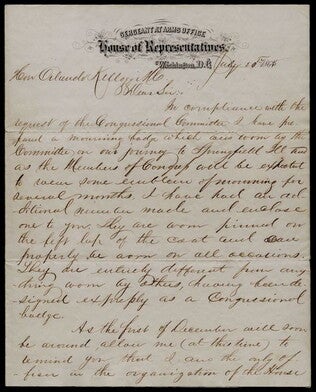 SERGEANT AT ARMS OFFICE
House of Representatives,
Washington, D.C. July
Hon Orlando Kellogg M.C.
Dear Sir.
In compliance with the
request of the Congressional Committee I have pre
pared a mourning badge which was worn by the
Committee on our journey to Springfield Ill and
as the Members of Congress will be expected
to wear some emblem of mourning for
several months. I have had an ad
ditional number made and enclose
one to you. They are worn pinned on
the left lap of the coat and can
properly be worn on all occasions.
They are entirely different from any
thing worn by others, having been de
signed expressly as a Congressional
badge.
As the first of December will soon
be around allow me (at this time) to
remind you that I am the only of
ficer in the organization of the House